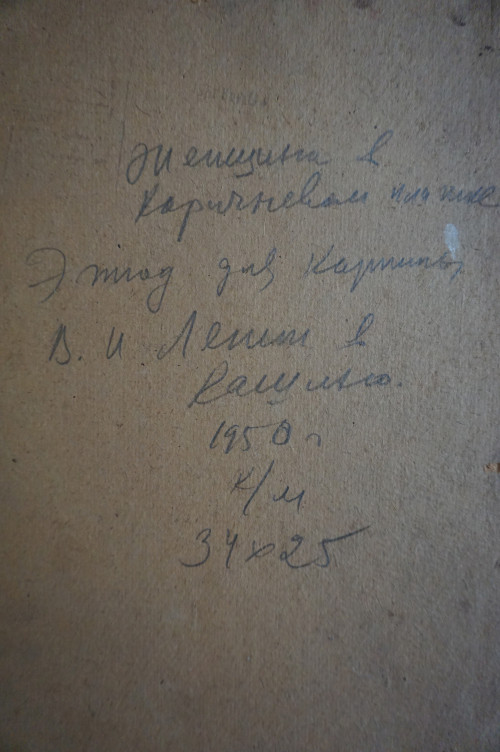 Женщина в
коричневом платке
Этюд для картины
В. И. Ленин в
Кашино.
1950 г
к/м
34х25